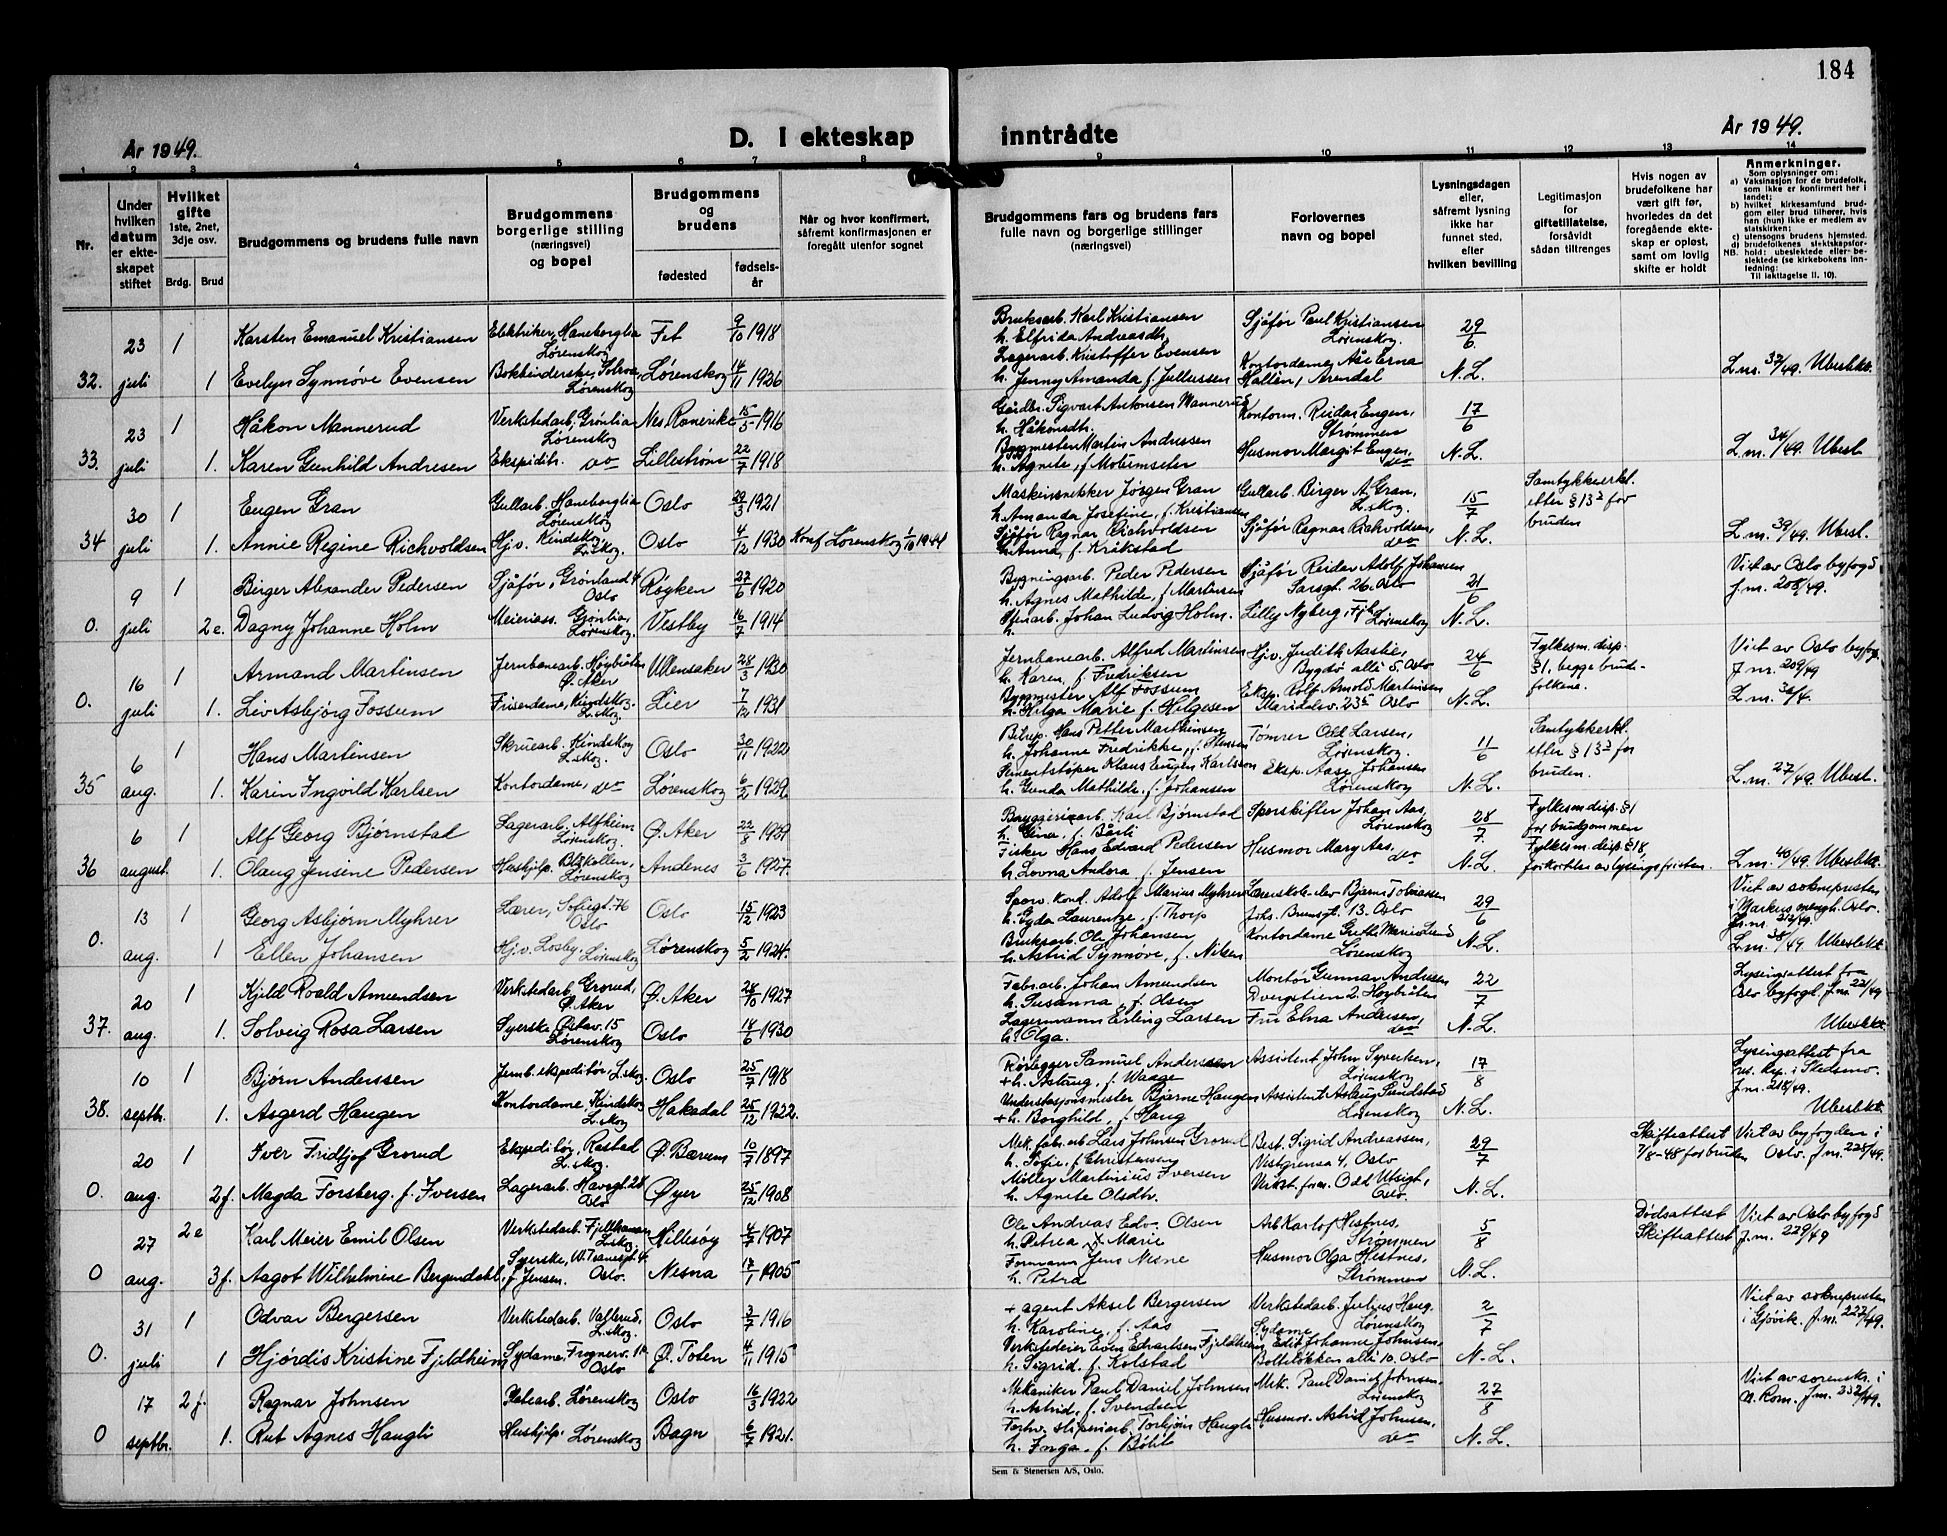 184
År 1949.
D. I ekteskap inntrådte
År 1949.
1 2 3 4 5 6 7 8 9 10 11 12 13 14
Nr.
Under hvilken datum er ekteskapet stiftet
Hvilket gifte 1ste, 2net, 3dje osv.
Brdg. Brud
Brudgommens og brudens fulle navn
Brudgommens borgerlige stilling (næringsvei) og bopel
Brudgommens og brudens
fødested
fødselsår
Når og hvor konfirmert, såfremt konfirmasjonen er foregått utenfor sognet
Brudgommens fars og brudens fars fulle navn og borgerlige stillinger (næringsvei)
Forlovernes navn og bopel
Lysningsdagen eller, såfremt lysning ikke har funnet sted, efter hvilken bevilling
Legitimasjon for giftetillatelse, forsåvidt sådan tiltrenges
Hvis nogen av brudefolkene har vært gift før, hvorledes da det foregående ekteskap er opløst, samt om lovlig skifte er holdt
Anmerkninger.
Som oplysninger om:
a) Vaksinasjon for de brudefolk, som ikke er konfirmert her i landet;
b) hvilket kirkesamfund brudgom eller brud tilhører, hvis han (hun) ikke er medlem av statskirken;
c) utensogns brudens hjemsted.
d) brudefolkenes slektskapsforhold: ubeslektede eller beslektede (se kirkebokens innledning:
NB. Til iakttagelse II. 10).
23 1 Karsten Emanuel Kristiansen Elektriker, Haneborglia Lørenskog Fet 9/10 1918 Bruksarb. Karl Kristiansen h. Elfrida Andreasdtr. Sjåfør Paul Kristiansen Lørenskog. 29/6
32. juli 1 Evelyn Synnøve Evensen Bokbinderske, Solvang Lørenskog Lørenskog 14/11 1926 Lagerarb. Kristoffer Evensen h. Jenny Amanda f. Jullussen Kontordame, Åse Erna Hallèn, Arendal N.L. L.m. 32/49. Ubeslkt.
23 1 Håkon Mannerud Verkstedarb, Grønlia Lørenskog Nes Romerike 15/5 1916 Gårdbr. Sigvart Antonsen Mannerud h. Håkonsdtr. Kontorm. Reidar Engen, Strømmen 17/6
33. juli 1. Karen Gunhild Andresen Ekspeditr. do Lillestrøm 22/7 1918 Bygmester Martin Andresen h. Agnete, f. Husmor Margit Engen, do N.L. L.m. 34/49. Ubesl.
30 1 Eugen Gran Gullarb. Haneborglia Lørenskog Oslo 29/3 1921 Maskinsnekker Jørgen Gran h. Amanda Josefine, f. Kristiansen Gullarb. Birger A. Gran, L.skog 15/7 Samtykkeerkl. etter § 13² for bruden
34 juli 1. Annie Regine Richvoldsen Hjv. Kindskog, L.skog. Oslo 4/12 1930 Konf. Lørenskog 1/10 1944 Sjåfør Ragnar Richvoldsen h. Anna, f. Krikstad Sjåfør Ragnar Richvoldsen, do N.L. L.m. 39/49. Ubesl.
9 1 Birger Alexander Pedersen Sjåfør, Grønland 4 Oslo Røyken 27/6 1920 Bygningsarb. Peder Pedersen h. Agnes Mathilde, f. Martinsen Sjåfør Reidar Adolf Johansen Sarsgt. 26. Oslo 21/6 Viet av Oslo byfogd J.m. 208/49.
0. juli 2e. Dagny Johanne Holm Meieriass. Grønlia, Lørenskog Vestby 16/7 1914 Johan Ludvig Holm. h. Lilly Nyberg, Lørenskog N.L.
16 1 Armand Martinsen Jernbanearb. Høybråten Ø. Aker Ullensaker 28/3 1930 Jernbanearb. Alfred Martinsen h. Karen, f. Fredriksen Hjv. Judith Aaslie, Bygdø allé 5. Oslo 24/6 Fylkesm. disp. § 1. begge brudefolkene. Viet av Oslo byfogd J.m. 209/49
0. juli 1. Liv Asbjörg Fossum Friserdame, Kindskog. L.skog. Lier 7/12 1931 Byggmester Alf Fossum h. Helga Marie f. Helgesen Eksp. Rolf Arnold Martinsen Maridalsv. 23 Oslo N.L.
6 1 Hans Martinsen Skruearb. Kindskog L.skog. Oslo 30/11 1922 Hans Petter Marthinsen h. Johanne Fredrikke, f. Stensen Tømrer Odd Larsen, Lørenskog. 11/6 Samtykkeerkl. etter § 13² for bruden.
35 aug. 1. Karin Ingvild Karlsen Kontordame, do Lørenskog 6/2 1929. Sementstøper Klaus Eugen Karlsson h. Gunda Mathilde, f. Johansen Eksp. Aase Johansen Lørenskog N.L. L.m. 27/49. Ubesl.
6 1 Alf Georg Bjørnstad Lagerarb. Alfheim Lørenskog. Ø. Aker 22/8 1929 Bryggeriarb. Karl Bjørnstad h. Gina, f. Bårli Sporskifter Johan Aas, Lørenskog 28/7 Fylkesm. disp. § 1 for brudgommen
36 august. 1. Olaug Jensine Pedersen Hushjelp, Blåkollen, Lørenskog Andenes 3/6 1927. Fisker Hans Edvard Pedersen h. Lovna Andora, f. Jensen Husmor Mary Aas, do N.L. Fylkesm. disp. § 18, forkortelse av lysingsfristen. L.m. 40/49. Ubeslkt.
13 1 Georg Asbjørn Myhrer Lærer, Sofiegt. 76 Oslo Oslo 15/12 1923 Sporv. kond. Adolf Marius Myhrer h. Gyda Laurentze, f. Thorp Lærerskole elev Bjarne Tobiassen Johs. Brunsgt. 13. Oslo 29/6 Viet av soknepresten i Markus mengh. Oslo. J.m. 212/49.
0. aug. 1 Ellen Johansen Hjv. Losby, Lørenskog Lørenskog 5/2 1924. Bruksarb. Ole Johansen h. Astrid Synnøve, f. Nilsen Kontordame Grethe Marie Lund Lørenskog N.L. L.m. 38/49 Ubeslekt.
20 1 Kjeld Roald Amundsen Verkstedarb, Grorud, Ø. Aker Ø. Aker 28/10 1927 Fabr.arb. Johan Amundsen h. Susanna, f. Olsen Montør Gunnar Andersen Dvergstien 2. Høybråten 22/7 Lysingattest fra Oslo byfogd. J.m. 221/49
37. aug. 1. Solveig Rosa Larsen Syerske, 15 Lørenskog Oslo 18/6 1930 Lagermann Erling Larsen h. Olga. Fru Elna Andersen, do N.L. Ubeslkt.
10 1 Bjørn Anderssen Jernb. ekspeditør, L.skog. Oslo 25/7 1918 Rørlegger Samuel Anderssen + h. Aslaug, f. Waage Assistent John Syversen, Lørenskog 17/8 Lysingattest fra res. kap. i Skedsmo. J.m. 218/49.
38. septbr. 1. Asgerd Haugen Kontordame, Kindskog L.skog Hakadal 25/12 1922. Understasjonsmester Bjarne Haugen + h. Borghild, f. Haug Assistent Aslaug Sundstad Lørenskog N.L. Ubeslkt.
20 1 Iver Fridtjof Grorud Ekspeditør, Rastad L.skog. Ø. Bærum 10/7 1897 Mek. fabr.arb. Lars Johnsen Grorud h. Sofie, f. Christensen Best. Sigrid Andreassen, Vestgrensa 4. Oslo 29/7 Skifteattest 7/8-48 for bruden Viet av byfogden i Oslo. J.m. 225/49.
0. aug. 2f. Magda Forsberg f. Iversen Lagerarb. Havsgt. 28 Oslo Øyer 25/12 1908 Møller Martinius Iversen h. Agnete Olsdtr. Verkst.fm. Odd Utsigt, Oslo. N.L.
27 2e Karl Meier Emil Olsen Verkstedarb. Fjellhamar, L.skog. Hillesøy 4/7 1907 Ole Andreas Edv. Olsen h. Petrea Marie Arb. Karlof Hestnes, Strømmen 5/8 Dødsattest Skifteattest Viet av Oslo byfogd J.m. 229/49
0 aug. 3f. Aagot Wilhelmine Bergendahl, f. Jensen. Syerske, W. Tranesgt. 4 Oslo. Nesna 17/1 1905 Formann Jens Nesne h. Petra Husmor Olga Hestnes, Strømmen N.L.
31 1 Odvar Bergersen Verkstedarb. Vallerud, L.skog. Oslo 3/7 1916 + agent Aksel Bergersen h. Karoline, f. Aas Verkstedarb. Julius Haug. Lørenskog 2/7 Viet av soknepresten i Gjøvik. J.m. 227/49.
0. juli 1 Hjørdis Kristine Fjeldheim Sydame, Frognerv. 1 Oslo Ø. Toten 4/11 1915 Verkstedeier Even Edvartsen Fjeldheim, h. Sigrid, f. Kolstad Sydame Edit Johanne Johnsen, Bolteløkken allé 10. Oslo N.L.
17 2f. Ragnar Johnsen Platearb. Lørenskog Oslo 16/3 1922 Mekaniker Paul Daniel Johnsen h. Astrid, f. Svendsen Mek. Paul Daniel Johnsen. Lørenskog 27/8 Viet av sorenskr. i N. Rom. J.m. 232/49.
0 septbr. 1. Rut Agnes Haugli Hushjelp, Lørenskog Bagn 6/7 1921. Forhv. sliperiarb. Torbjørn Haugli h. Inga, f. Bøhle Husmor Astrid Johnsen, do N.L.
Sem & Stenersen A/S, Oslo.